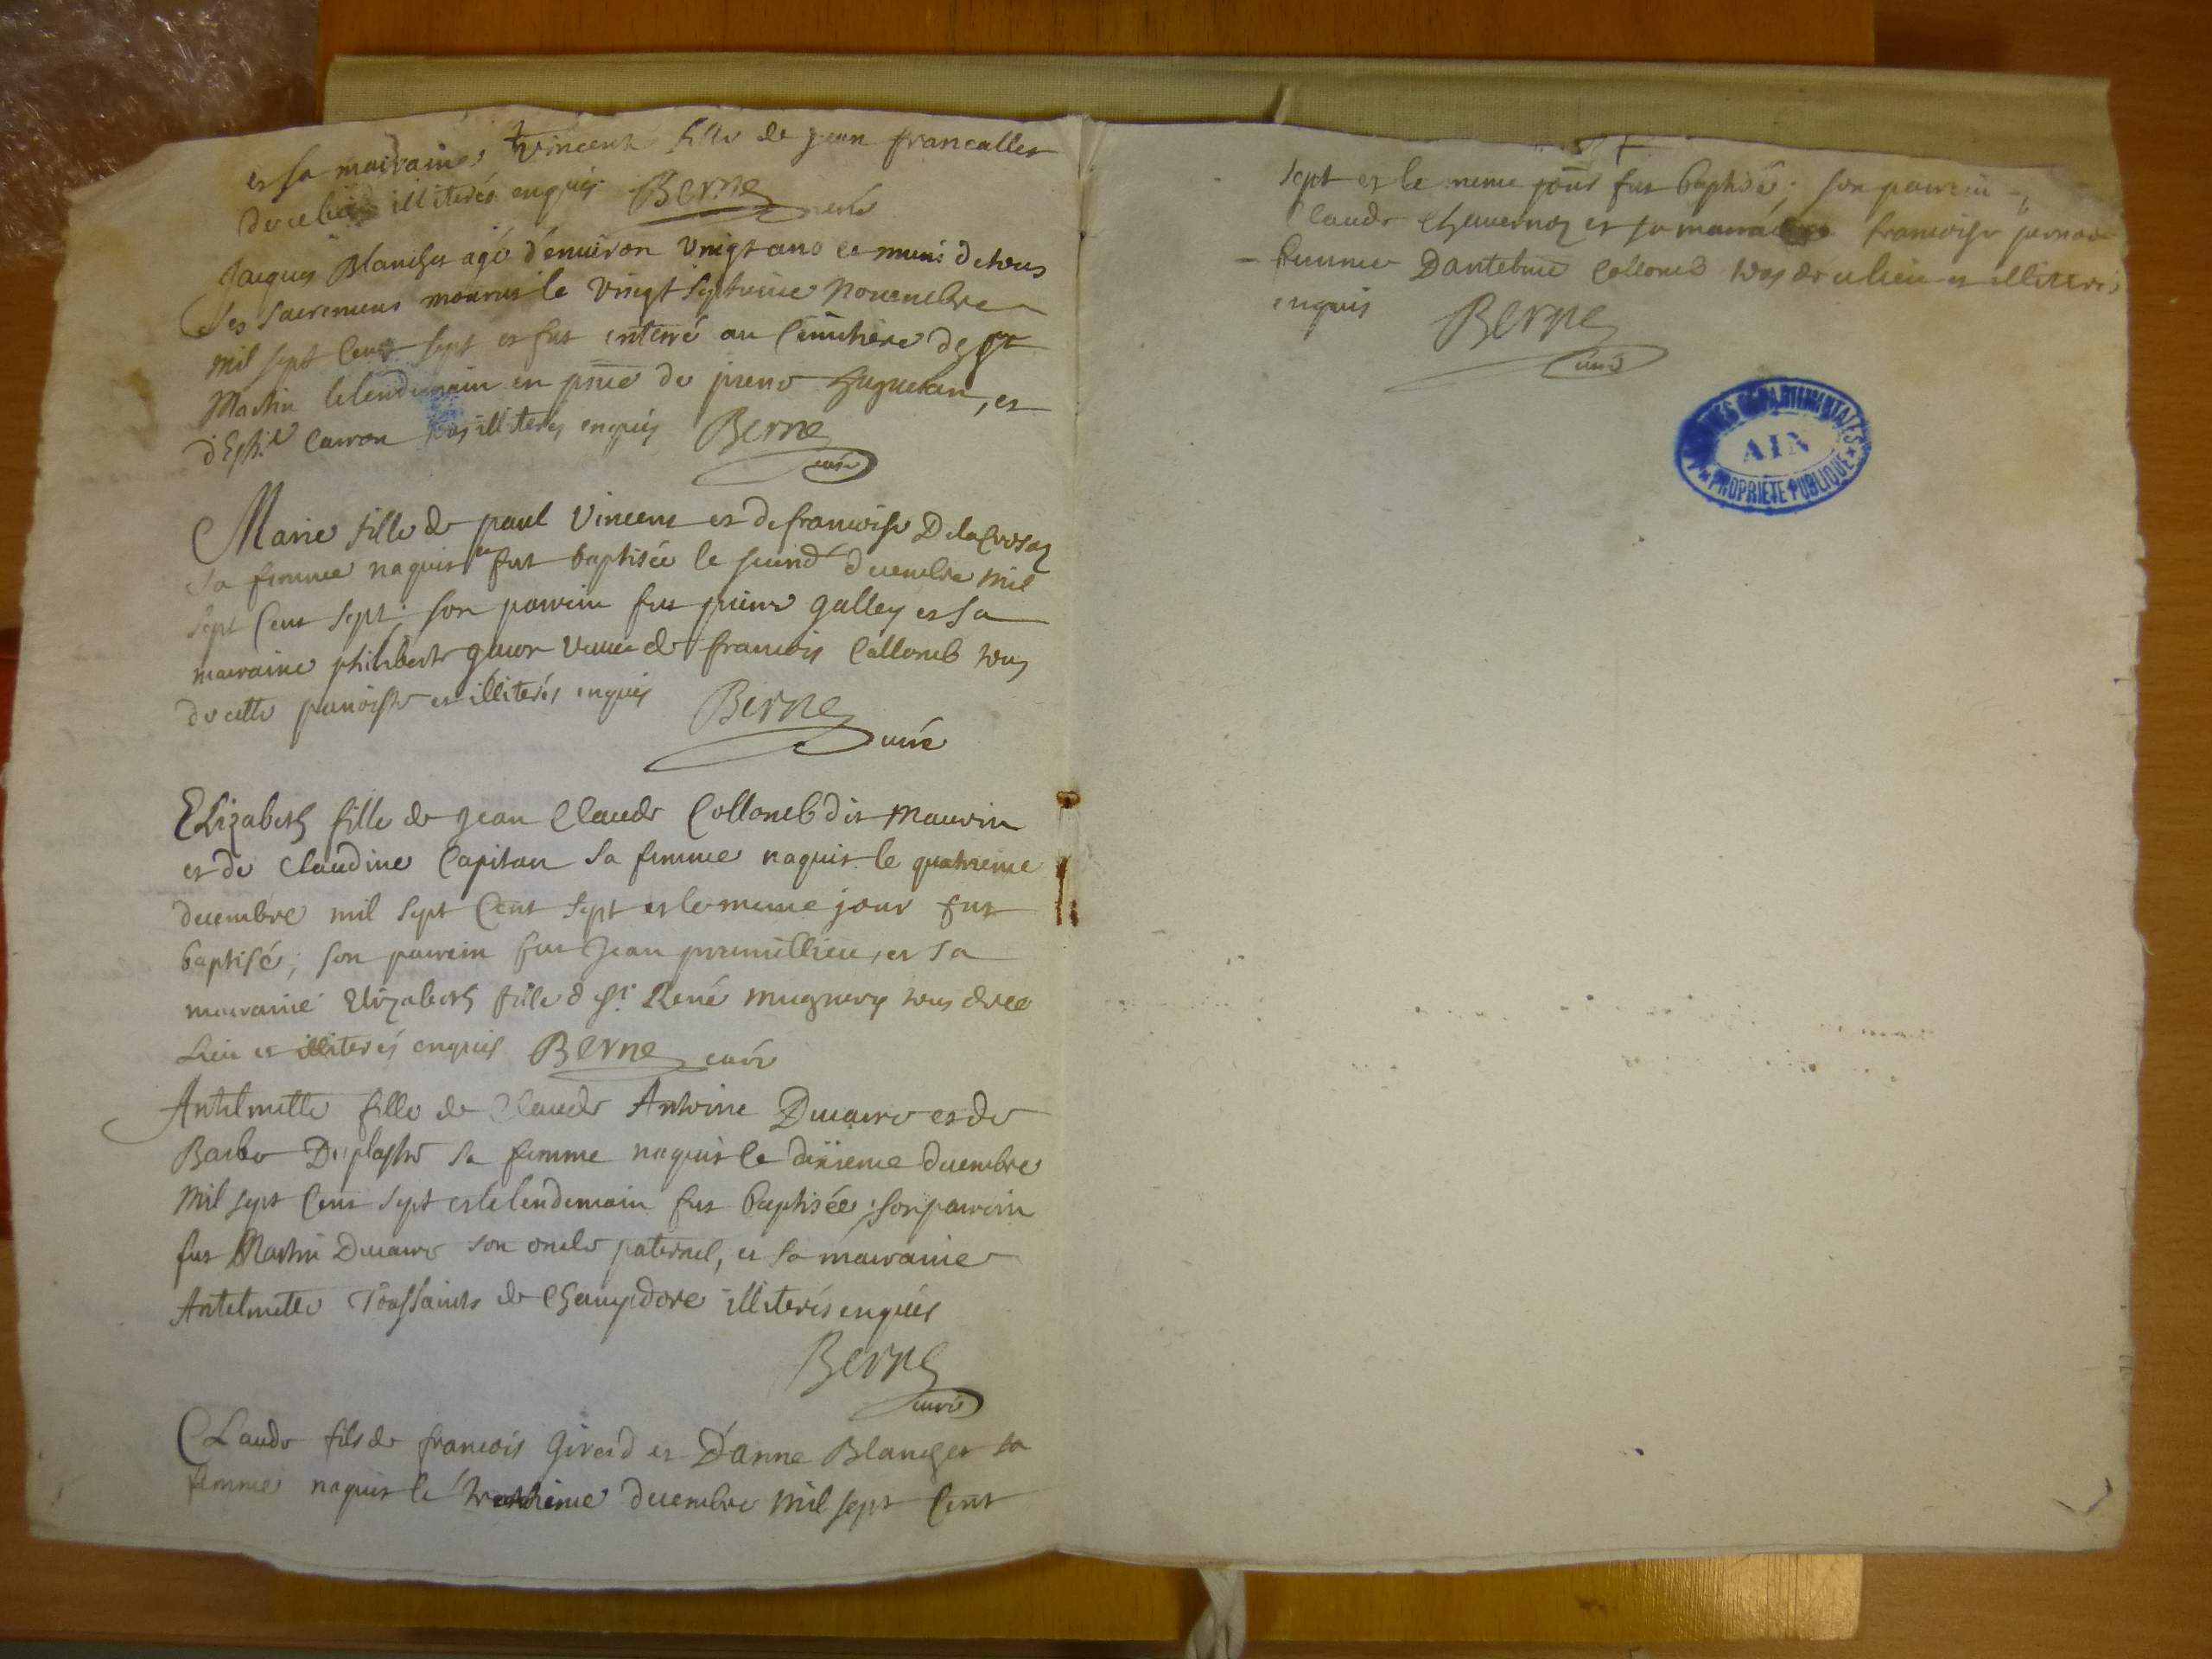 et sa marraine Vincent fille de jean francallet
de ce lieu illiterés enquis Berne curé
Jacques Blanchet agé d'environ vingt ans et muni de tous
ses sacremens mourut le vingt septieme Novembre
mil sept cent sept et fut enterré au cimitiere de st
Martin le lendemain en pñce de pierre huguenan, et
d'Esti.e Carron tous illiterés enquis Berne
curé
Marie fille de paul Vincent et de francoise Delacrosaz
sa femme naquit et fut baptisée le second decembre mil
sept cent sept; son parrein fut pierre galley et sa
marraine philiberte veuve de francois Collomb tous
de cette parroisse et illiterés enquis Berne
curé
Elizabeth fille de jean Claude Collomb dit Maurin
et de Claudine Capitan sa femme naquit le quatrieme
decembre mil sept cent sept et le meme jour fut
baptisé; son parrein fut Jean premillieu, et sa
marraine Elizabeth fille d st. René mugnery tous de ce
Lieu et illiterés enquis Berne curé
Antelmette fille de Claude Antoine Ducarre et de
Barbe Duplastre sa femme naquit le dixieme decembre
Mil sept cent sept et le lendemain fut Baptisée; son parrein
fut Martin Ducarre son oncle paternel, et sa marraine
Antelmette Toussaints de Champdore illiterés enquis
Berne
curé
Claude fils de francois Girard et D'anne Blanchet sa
femme naquit le decembre mil sept cent
sept et le meme jour fut baptisé; son parrein
Claude Chavernoz et sa marraine francoise
femme Dantelme Collomb tous de ce lieu et illiterés
enquis Berne
curé
ARCHIVES DEPARTEMENTALES
AIN
PROPRIETE PUBLIQUE